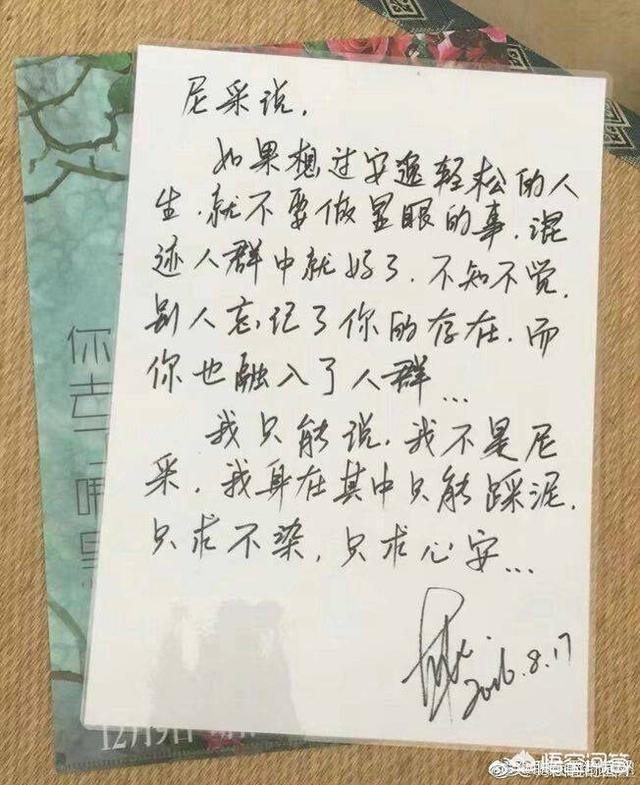 尼采说，
如果想过安逸轻松的人
生，就不要做显眼的事，混
迹人群中就好了，不知不觉，
别人忘记了你的存在，而
你也融入了人群...
我只能说，我不是尼
采，我身在其中只能踩泥，
只求不染，只求心安...
2016.8.17
你幸
12月9日
悟空问答